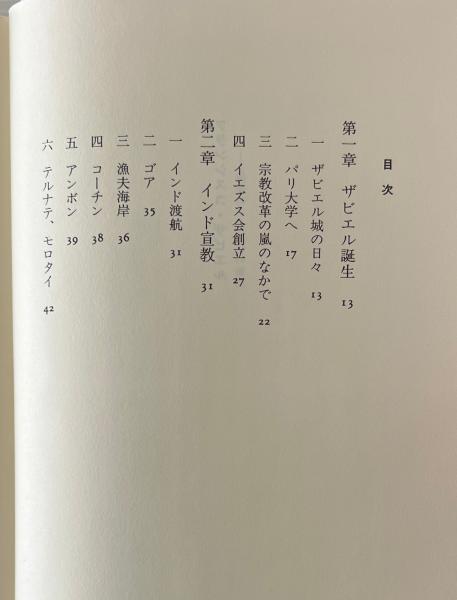 目次
第一章 ザビエル誕生 13
一 ザビエル城の日々 13
二 パリ大学へ 17
三 宗教改革の嵐のなかで 22
四 イエズス会創立 27
第二章 インド宣教 31
一 インド渡航 31
二 ゴア 35
三 漁夫海岸 36
四 コーチン 38
五 アンボン 39
六 テルナテ、モロタイ 42